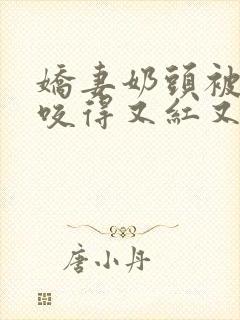 嬌妻奶頭被
咬得又紅又
唐小丹